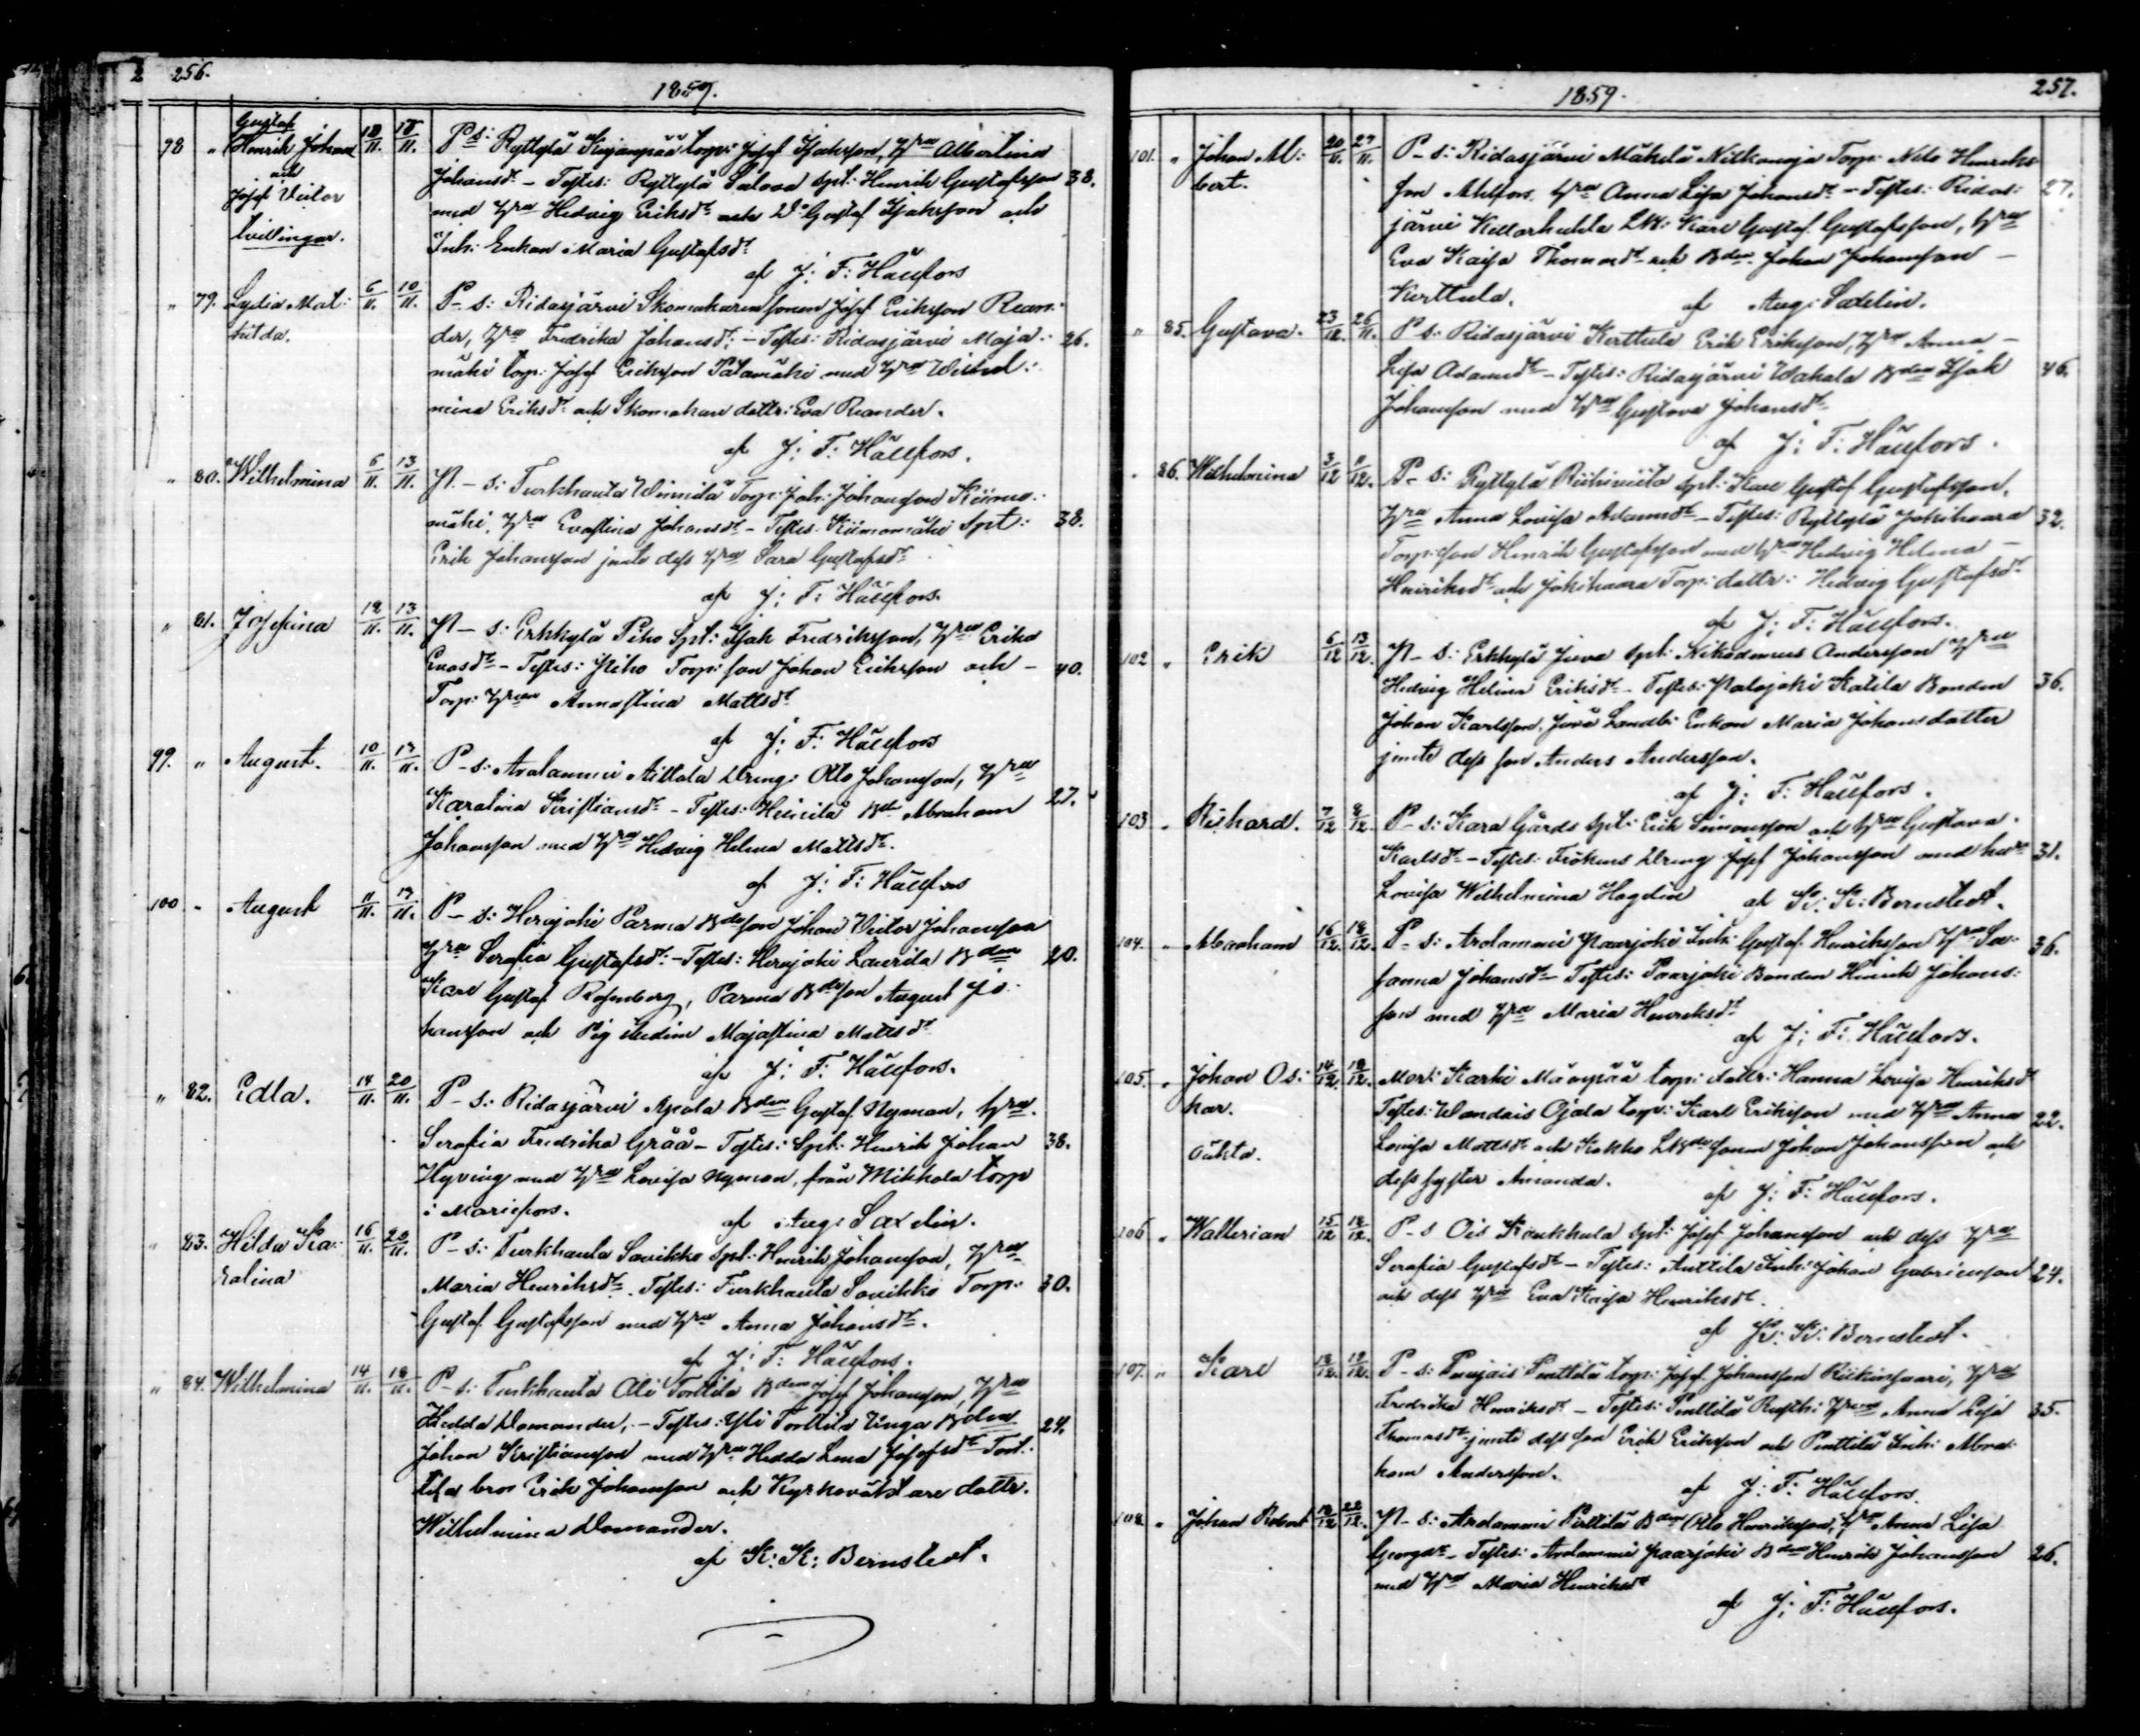 256.
1859.
78 " Gustaf
Henrik Johan 10/11. 18/11. P s: Ryttylä Kujanpää torp: Josef Isaksson, H:ru Albertina
och
Josef Victor Johansdr - Testes: Ryttylä Salova Spt: Henrik Gustafsson 38.
tvillingar. med H:ru Hedvig Eriksdr och Do Gustaf Isaksson och
Inh: Enkan Maria Gustafsdr
af J: F: Hällfors
" 79. Lydia Mat: 6/11. 10/11. P - s: Ridasjärvi Skomakaresonen Josef Eriksson Rean:
hilda. der, H:ru Fredrika Johansdr; - Testes: Ridasjärvi Maja: 26.
mäki torp: Josef Eriksson Palamäki med H:ru Wilhel:
mina Eriksdr och Skomakare dottr: Eva Reander.
af J: F: Hällfors.
" 80. Wilhelmina 6/11. 13/11. P. - s: Turkhauta Torp: Joh: Johansson Kiimo:
mäki, H:ru Evastina Johansdr - Testes: Kiimomäki Spt: 38.
Erik Johansson jemte dess H:ru Sara Gustafsdr
af J: F: Hällfors.
" 81. Josefina 12/11. 13/11. P - s: Erkkylä Piho Spt: Isak Fredriksson, H:ru Erika
Enasdr - Testes: Piho Torp: son Johan Eriksson och - 40.
Torp: H:ru Annastina Mattsdr
af J: F: Hällfors
99. " August. 10/11. 17/11. P - s: Arolammi Aittola Dreng: Otto Johansson, H:ru
Karolina Kristiansdr - Testes: Heinilä Abraham 27.
Johansson med H:ru Hedvig Helena Mattsdr.
af J: F: Hällfors
100 " August 11/11. 17/11. P - s: Herajoki Parma Bdeson Johan Victor Johansson
H:ru Serafia Gustafsdr - Testes: Herajoki Laurila Bden 20.
Karl Gustaf Rosenberg, Parma Bdeson August Jo:
hansson och Pig Majastina Mattsdr
af J: F: Hällfors.
" 82. Edla. 14/11. 20/11. P - s: Ridasjärvi Bden Gustaf Nyman, H:ru
Serafia Fredrika Gråå - Testes: Spt: Henrik Johan 38.
Hyving med H:ru Lovisa Nyman, från Mikkola torp
i Mariefors. af Aug: Saxelin.
" 83. Hilda Ka: 16/11. 20/11. P - s: Turkhauta Savikko Spt: Henrik Johansson, H:ru
rolina Maria Henriksdr. Testes: Turkhauta Savikko Torp: 30.
Gustaf Gustafsson med H:ru Anna Johansdr.
af J: F: Hällfors.
" 84. Wilhelmina 14/11. 18/11. P - s: Turkhauta Ali Torttila Bden Josef Johansson, H:ru
Hedda Domander, - Testes: Yli Torttila Unga Bden 24.
Johan Kristiansson med H:ru Hedda Lena Josefsdr Tort:
tila bror Erik Johansson och Kyrkoväktare dottr.
Wilhelmina Domander.
af K: K: Bernstedt.
257.
1859.
101. " Johan Al: 20/11. 27/11. P - s: Ridasjärvi Mäkelä Torp: Nils Henriks
bert. son Ahlfors, H:ru Anna Lisa Johansdr - Testes: Ridas: 27.
järvi Kellarhuhta Karl Gustaf Gustafsson, H:ru
Eva Kaisa Thomasdr och Bden Johan Johansson -
Kerttula. af Aug: Saxelin.
" 85. Gustava. 23/11. 26/11. P s: Ridasjärvi Kerttula Erik Eriksson, H:ru Anna -
Lisa Adamsdr - Testes: Ridasjärvi Wahala Bden Isak 46.
Johansson med H:ru Gustava Johansdr
af J: F: Hällfors.
" 86. Wilhelmina 3/12 P - s: Ryttylä Riihiviita Spt: Karl Gustaf Gustafsson,
H:ru Anna Lovisa Adamsdr - Testes: Ryttylä Jokihaara 32.
Torp: son Henrik Gustafsson med H:ru Hedvig Helena -
Henriksdr och Jokihaara Torp: dottr: Hedvig Gustafsdr
af J: F: Hällfors.
102 " Erik 6/12 13/12. P - s: Erkkylä Juva Spt: Nikodemus Andersson H:ru
Hedvig Helena Eriksdr - Testes: Palojoki Katila Bonden 36.
Johan Karlsson, Juva Landb: Enkan Maria Johansdotter
jemte dess son Anders Andersson.
af J: F: Hällfors.
103 " Richard. 7/12 8/12. P - s: Kara Gårds Spt: Erik Simonsson och H:ru Gustava
Karlsdr - Testes: Frökens Dreng Josef Johansson med 31.
Lovisa Wilhelmina Hagelin af K: K: Bernstedt.
104. " Abraham 16/12. 18/12. P - s: Arolammi Paarjoki Inh: Gustaf Henriksson H:ru Su: 36.
sanna Johansdr - Testes: Paarjoki Bonden Henrik Johans:
son med H:ru Maria Henriksdr
af J: F: Hällfors.
105. " Johan Os: 14/12. 18/12. Mod: Karhi Mäenpää torp: dottr: Hanna Lovisa Henriksdr
kar. Testes: Wandais Ojala torp: Karl Eriksson med H:ru Anna 22.
oäkta. Lovisa Mattsdr och Kokko sonen Johan Johansson och
dess syster Amanda. af J: F: Hällfors.
106 " Wallerian 15/12 18/12. P - s Ois Kaukkula Spt: Josef Johansson och dess H:ru
Serafia Gustafsdr - Testes: Anttila Inh: Johan Gabrielsson 24.
och dess H:ru Eva Kaisa Henriksdr.
af K: K: Bernstedt.
107. " Karl 18/12. 19/12. P - s: Punjais Penttilä torp: Josef Johansson Riikinsaari, H:ru
Fredrika Henriksdr - Testes: Penttilä Rusth: H:ru Anna Lisa 35.
Thomasdr jemte dess son Erik Eriksson och Penttilä Inh: Abra:
ham Andersson.
af J: F: Hällfors.
108. " Johan Robert 18/12. 22/12. P - s: Arolammi Perttilä Bden Otto Henriksson, H:ru Anna Lisa
Georgsdr - Testes: Arolammi Paarjoki Bden Henrik Johansson 26.
med H:ru Maria Henriksdr
af J: F: Hällfors.